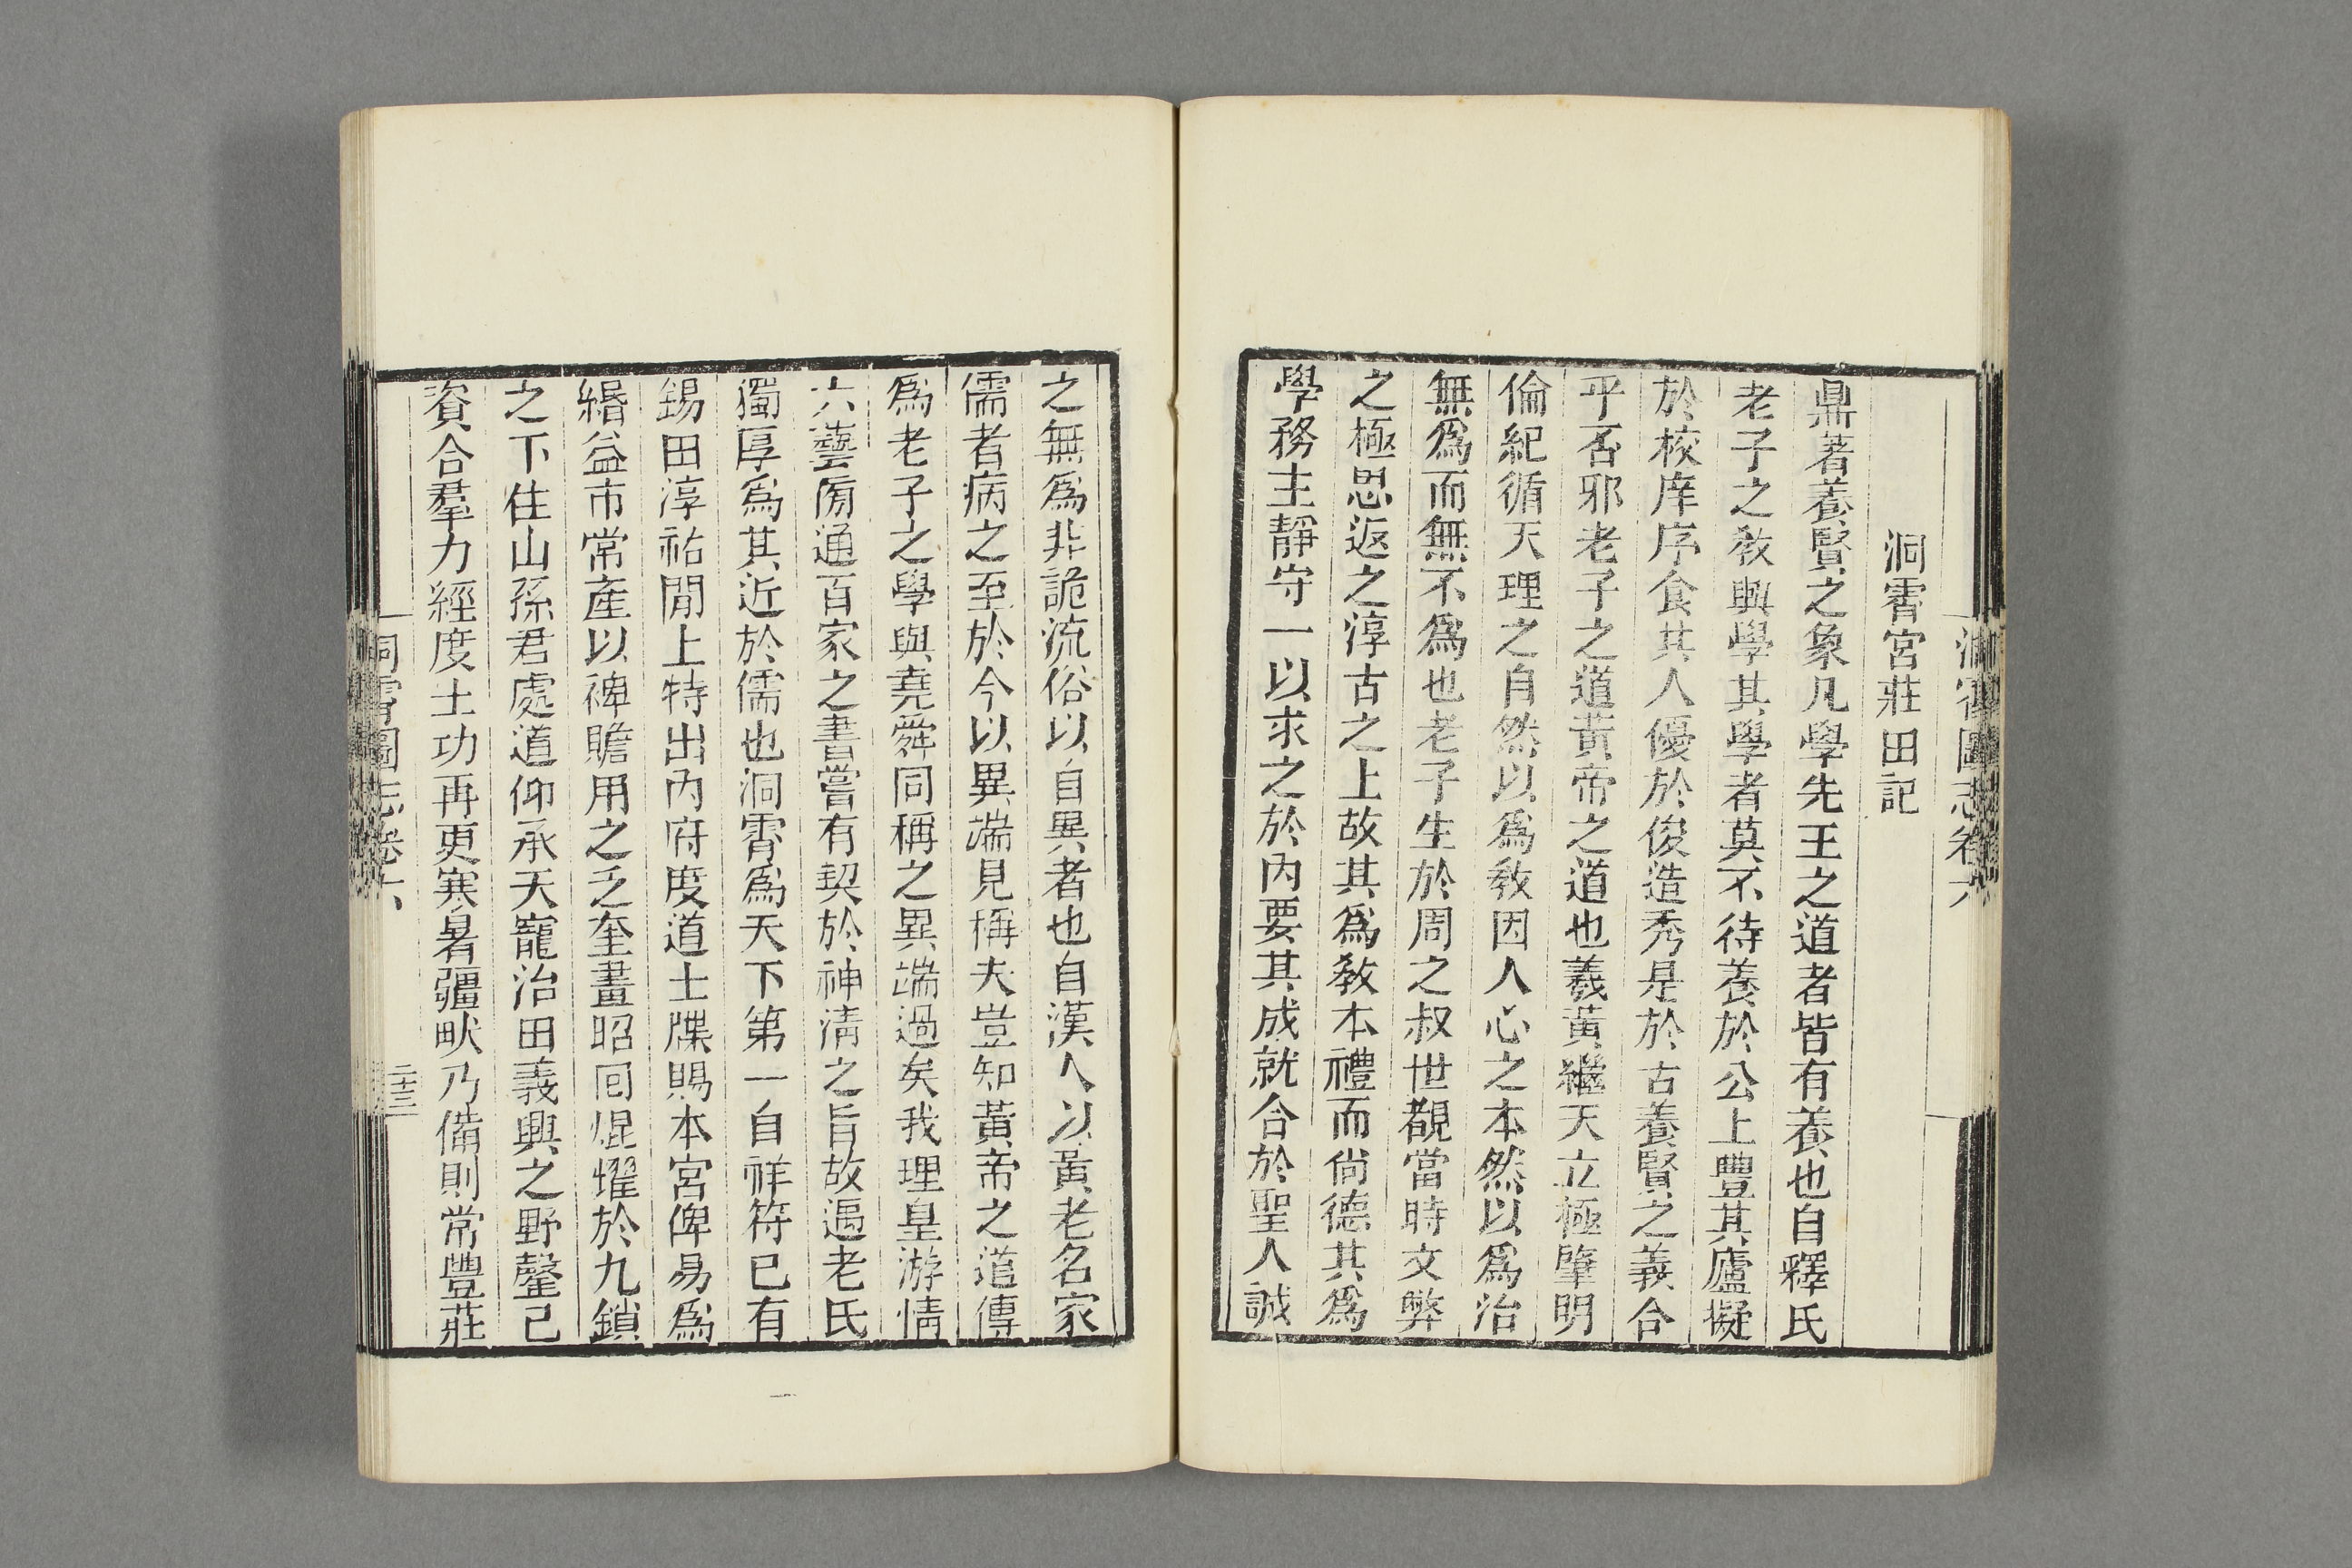 洞霄圖志卷六
洞霄宮莊田記
鼎著養賢之象凡學先王之道者皆有養也自釋氏
老子之敎興學其學者莫不待養於公上豐其廬擬
於校庠序食其人優於俊造秀是於古養賢之義合
乎否邪老子之道黃帝之道也羲黃繼天立極肇明
倫紀循天理之自然以爲敎因人心之本然以爲治
無爲而無不爲也老子生於周之叔世覩當時文弊
之極思返之淳古之上故其爲敎本禮而尙德其爲
學務主靜守一以求之於內要其成就合於聖人誠
之無爲非詭流俗以自異者也自漢人以黃老名家
儒者病之至於今以異端見稱夫豈知黃帝之道傳
爲老子之學與堯舜同稱之異端過矣我理皇游情
六藝㫄通百家之書嘗有契於神淸之旨故遇老氏
獨厚爲其近於儒也洞霄爲天下第一自祥符已有
錫田淳祐閒上特出內府度道士牒賜本宮俾易爲
緡益市常產以裨贍用之乏奎畫昭回焜燿於九鎖
之下住山孫君處道仰承天寵治田義興之野罄己
資合羣力經度土功再更寒暑疆畎乃備則常豐莊
洞霄圖志卷六
二十三